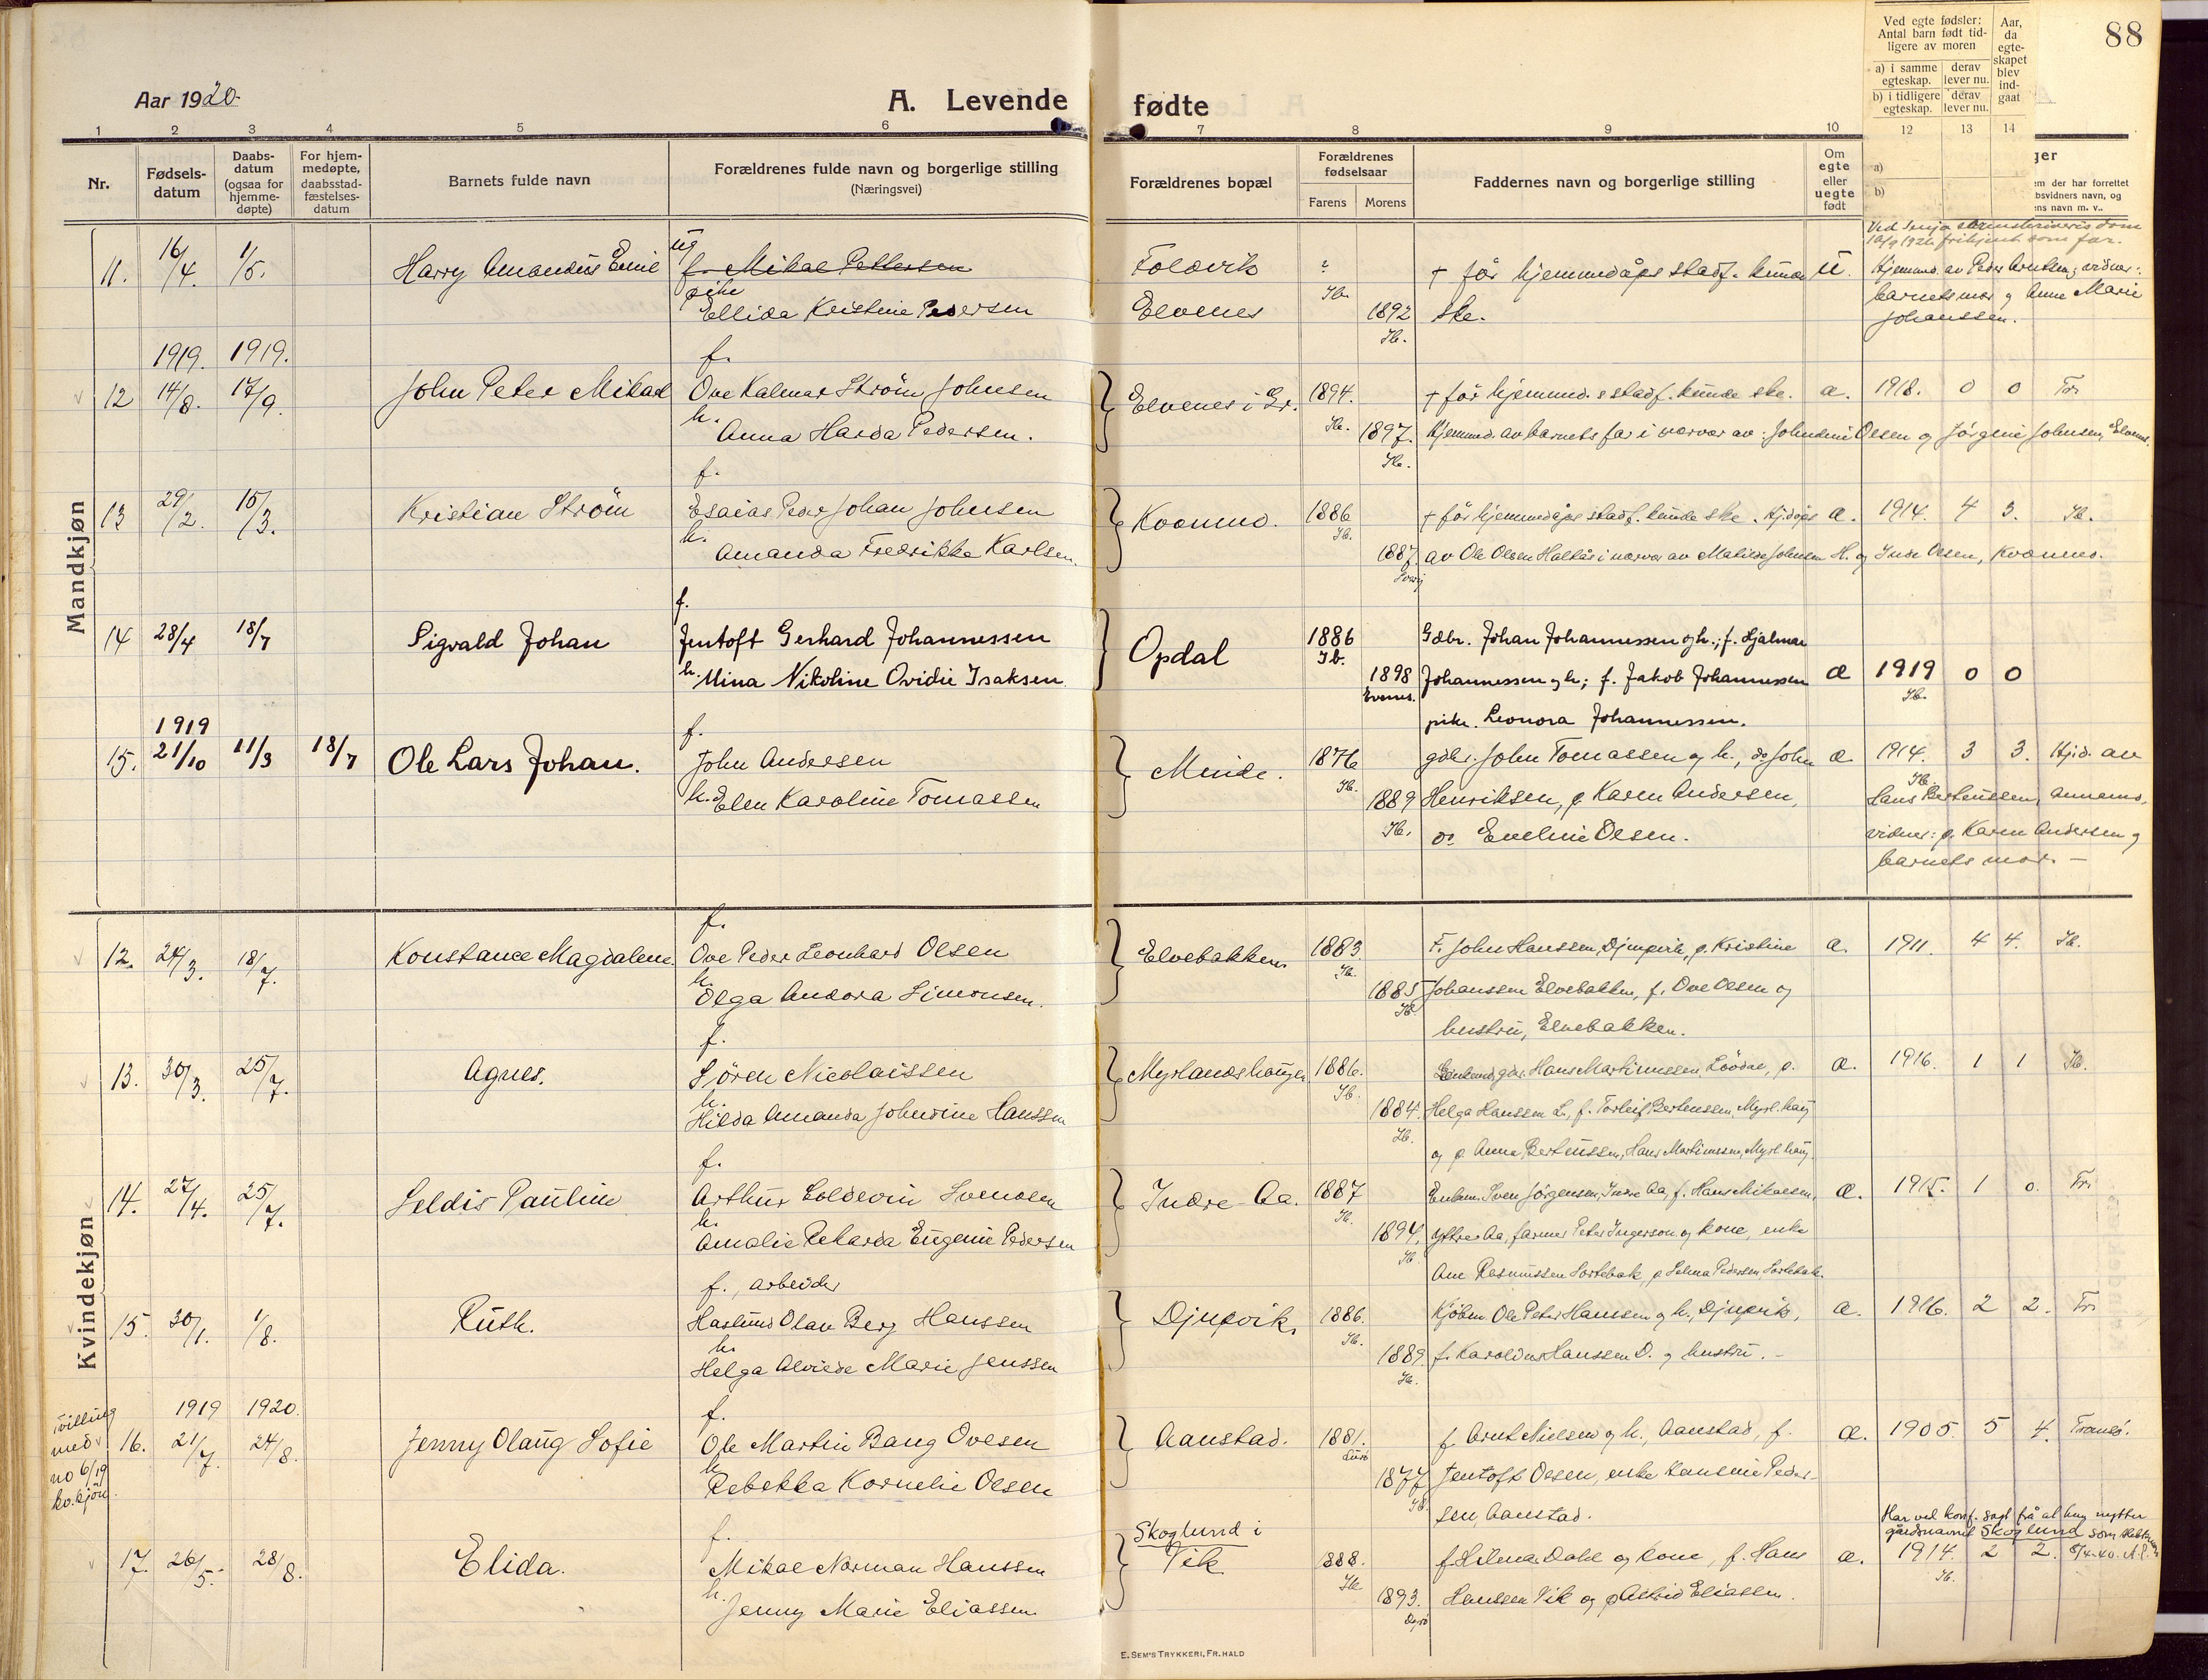 88
Aar 1920
A. Levende fødte
1 2 3 4 5 6 7 8 9 10 12 13 14
Nr.
Fødsels-
datum
Daabs-
datum
(ogsaa for
hjemme-
døpte)
For hjem-
medøpte,
daabsstad-
fæstelses-
datum
Barnets fulde navn
Forældrenes fulde navn og borgerlige stilling
(Næringsvei)
Forældrenes bopæl
Forældrenes
fødselsaar
Farens Morens
Faddernes navn og borgerlige stilling
Om
egte
eller
uegte
født
Ved egte fødsler:
Antal barn født tid-
ligere av moren
a) i samme egteskap. derav lever nu.
b) i tidligere egteskap. derav lever nu.
Aar,
da
egte-
skapet
blev
ind-
gaat
a)
b)
ger
em der har forrettet
bsvidners navn, og
ens navn m. v..
Mandkjøn
11. 16/4. 1/5. Harry Amandus Emil
ug
f. Mikal Pettersen
pike
Ellida Kristine Pedersen
Foldvik
Elvenes
? Ib.
1892 Ib.
+ før hjemmedåps stadf. kunde
ske.
U.
Hjemmed. av Peder Arntsen; vidner:
barnets mor og Anne Marie
Johanssen.
1919. 1919.
12 14/8. 17/9. John Peter Mikal
f.
Ove Kalmar Strøm Johnsen
h.
Anna Harda Pedersen.
Elvenes i Gr.
1894. Ib.
1897. Ib.
+ før hjemmed.s stadf. kunde ske. æ. 1918. 0 0 Tr.
Hjemmed. av barnets far i nærvær av: Johndine Olsen og Jørgine Johnsen, Elvenes.
13 29/2. 15/3. Kristian Strøm
f.
Esaias Peder Johan Johnsen
h.
Amanda Fredrikke Karlsen.
Kvanmo.
1886 Ib.
1887
+ før hjemmedåps stadf. kunde ske. Hj.døpt æ. 1914. 4 3. Ib.
av Ole Olsen Haltås i nærvær av Matilde Johnsen H. og Inde Olsen, Kvanmo.
14 28/4 18/7 Sigvald Johan
f.
Jentoft Gerhard Johannessen
h. Mina Nikoline Ovidie Isaksen
Opdal
1886 Ib.
1898 Evenes.
Gdbr. Johan Johannessen og h.; f. Hjalmar
Johannessen og h; f. Jakob Johannessen
pike. Leonora Johannessen.
æ 1919 0 0
Ib.
1919
15. 21/10 11/3 18/7 Ole Lars Johan.
f.
John Andersen
h. Elen Karoline Tomassen
Minde.
1876 Ib.
1889 Ib.
gdbr. John Tomassen og h., do John
Henriksen, p. Karen Andersen,
do Eveline Olsen.
æ 1914. 3 3. Hjd. av
Ib.
Hans Bertenssen, Annamo,
vidner: p. Karen Andersen og
barnets mor. –
Kvindekjøn
12. 24/3. 18/7. Konstance Magdalene.
f.
Ove Peder Leonhard Olsen
h.
Olga Andora Simonsen.
Elvebakken
1883. Ib.
1885 Ib.
F. John Hanssen, Djupvik, p. Kristine
Johanssen Elvebakken, f. Ove Olsen og
hustru, Elvebakken.
æ. 1911. 4 4. Ib.
13. 30/3. 25/7. Agnes.
f.
Søren Nicolaissen
h.
Hilda Amanda Johndine Hanssen
Myrlandshaugen
1886. Ib.
1884. Ib.
Hans Martinussen, p.
Helga Hanssen L., f. Torleif Bertenssen, Myrl.haug
og p. Anna Bertenssen, Hans Martinussen, Myrl.haug.
æ. 1916. 1 1 Ib.
14. 27/4. 25/7. Seldis Pauline
f.
Arthur Soldevin Svendsen
h.
Amalie Rekarda Eugenie Pedersen
Indre Aa.
1887 Ib.
1894. Ib
Enkem. Sven Jørgensen, Indre Aa, f. Hans Mikaelsen,
Yttre Aa, farmer Peter Ingerson og kone, enke
Ane Rasmussen Sortebak, p Selma Pedersen, Sortebak.
æ. 1915. 1 0. Tr.
15. 30/1. 1/8. Ruth.
f., arbeider
Haslund Olav Berg Hanssen
h.
Helga Alvilde Marie Jenssen
Djupvik.
1886. Ib.
1889 Ib.
Kjøbm. Ole Peter Hanssen og h., Djupvik,
f. Karoldus Hanssen D. og hustru. –
æ. 1916. 2 2. Tr.
Tvilling
med
no 6/19
kv.kjøn.
1919 1920.
16. 21/7. 24/8. Jenny Olaug Sofie
f.
Ole Martin Bang Ovesen
h.
Rebekka Kornelie Olsen
Aanstad.
1881.
1877 Ib.
f. Arnt Nielsen og h., Aanstad, f.
Jentoft Olsen, enke Hansine Peder-
sen, Aanstad.
æ. 1905. 5 4. Tranøi.
17. 26/5. 28/8. Elida.
f.
Mikal Norman Hanssen
h.
Jenny Marie Eliassen
Skoglund i
Vik
1888. Ib
1893.
f. Hilmar Dahl og kone, f. Hans
Hanssen Vik og p Astrid Eliassen.
Har ved konf. sagt frå at hun nytter
gårdsnavnet Skoglund som slektsnavn
æ. 1914. 2 2. 8/4-40. A.S.
Ib.
E. SEM'S TRYKKERI, FR.HALD